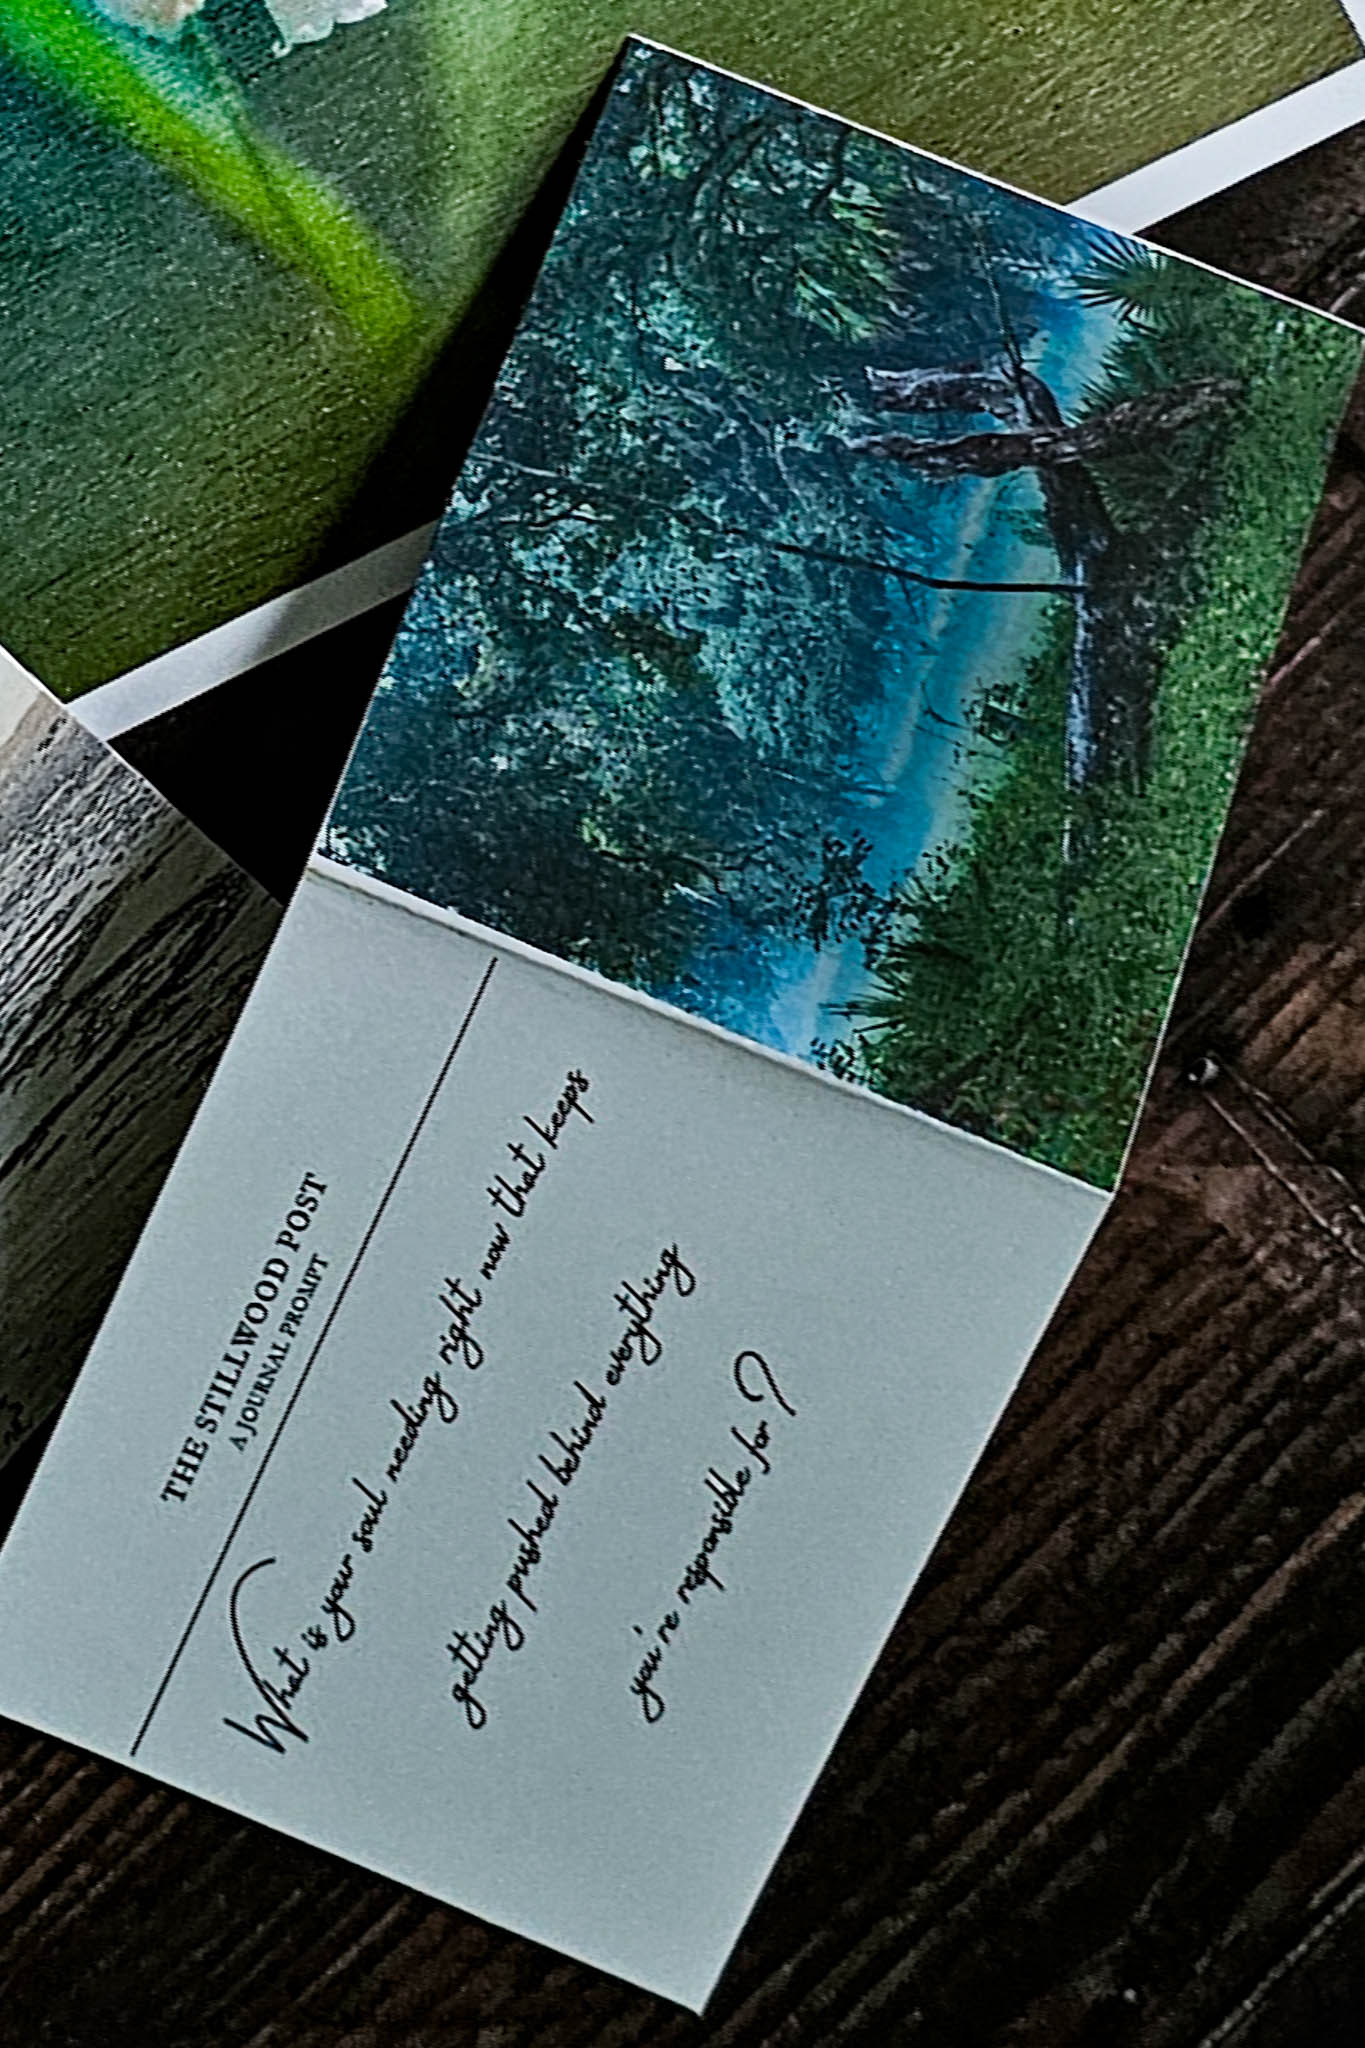 THE STILLWOOD POST
A JOURNAL PROMPT
What is your soul needing right now that keeps
getting pushed behind everything
you're responsible for?